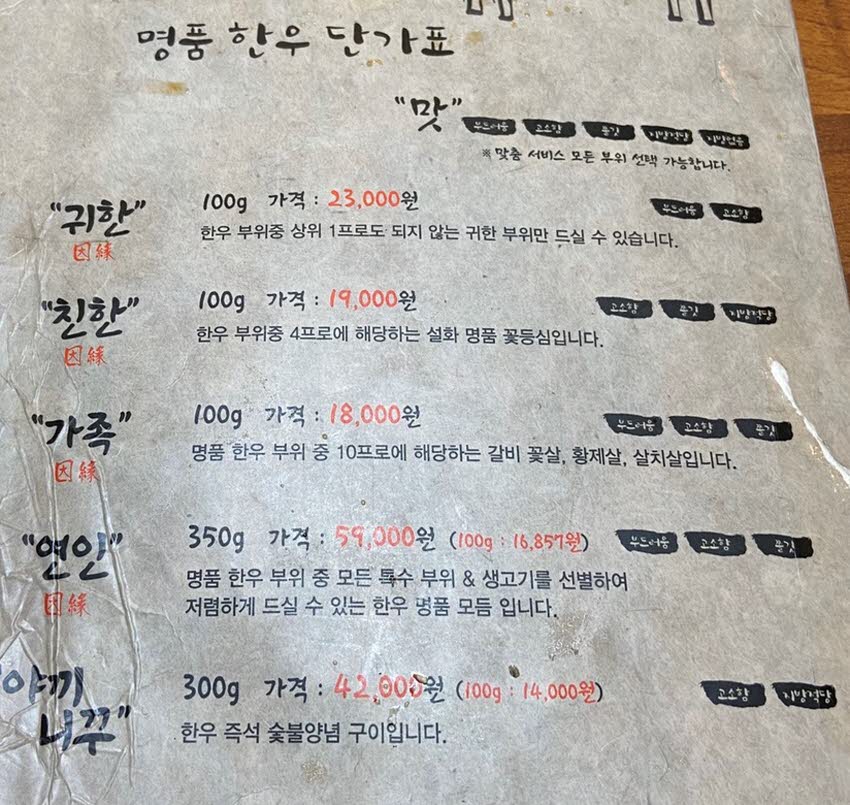 명품 한우 단가표
"맛" 부드러움 고소함 풍깃 지방적당 지방없음
※ 맞춤 서비스 모든 부위 선택 가능합니다.
"귀한" 100g 가격 : 23,000원 부드러움 고소함
因緣 한우 부위중 상위 1프로도 되지 않는 귀한 부위만 드실 수 있습니다.
"친한" 100g 가격 : 19,000원 고소함 풍깃 지방적당
因緣 한우 부위중 4프로에 해당하는 설화 명품 꽃등심입니다.
"가족" 100g 가격 : 18,000원 부드러움 고소함 풍깃
因緣 명품 한우 부위 중 10프로에 해당하는 갈비 꽃살, 황제살, 살치살입니다.
"연인" 350g 가격 : 59,000원 (100g : 16,857원) 부드러움 고소함 풍깃
因緣 명품 한우 부위 중 모든 특수 부위 & 생고기를 선별하여
저렴하게 드실 수 있는 한우 명품 모듬 입니다.
"야끼
니꾸" 300g 가격 : 42,000원 (100g : 14,000원) 고소함 지방적당
한우 즉석 숯불양념 구이입니다.